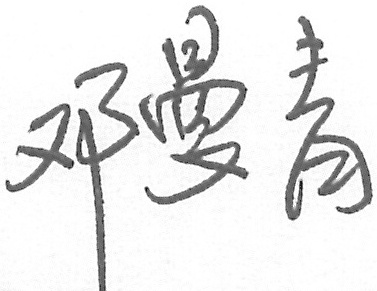 邓曼青